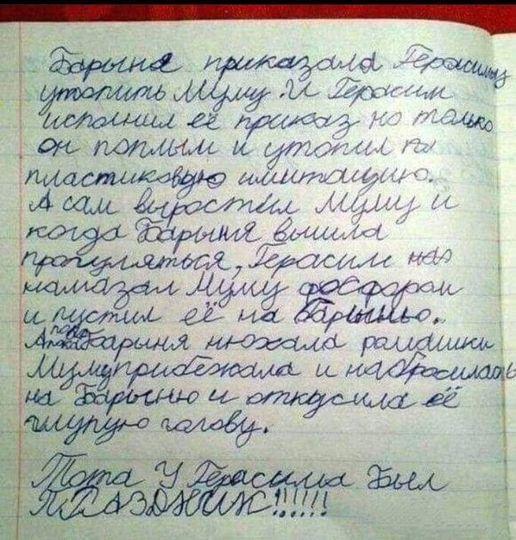 Барыня приказала Герасиму
утопить Муму. И Герасим
исполнил её приказ но только
он поплыл и утопил
пластиковую имитацию.
А сам выростил Муму и
когда Барыня вышла
прогуляться, Герасим
намазал Муму фосфором
и пустил её на Барыню.
А пока Барыня нюхала ромашки
Муму прибежала и набросилась
на Барыню и откусила её
глупую голову.
Тота У Герасима был
ПРАЗДНИК!!!!!!